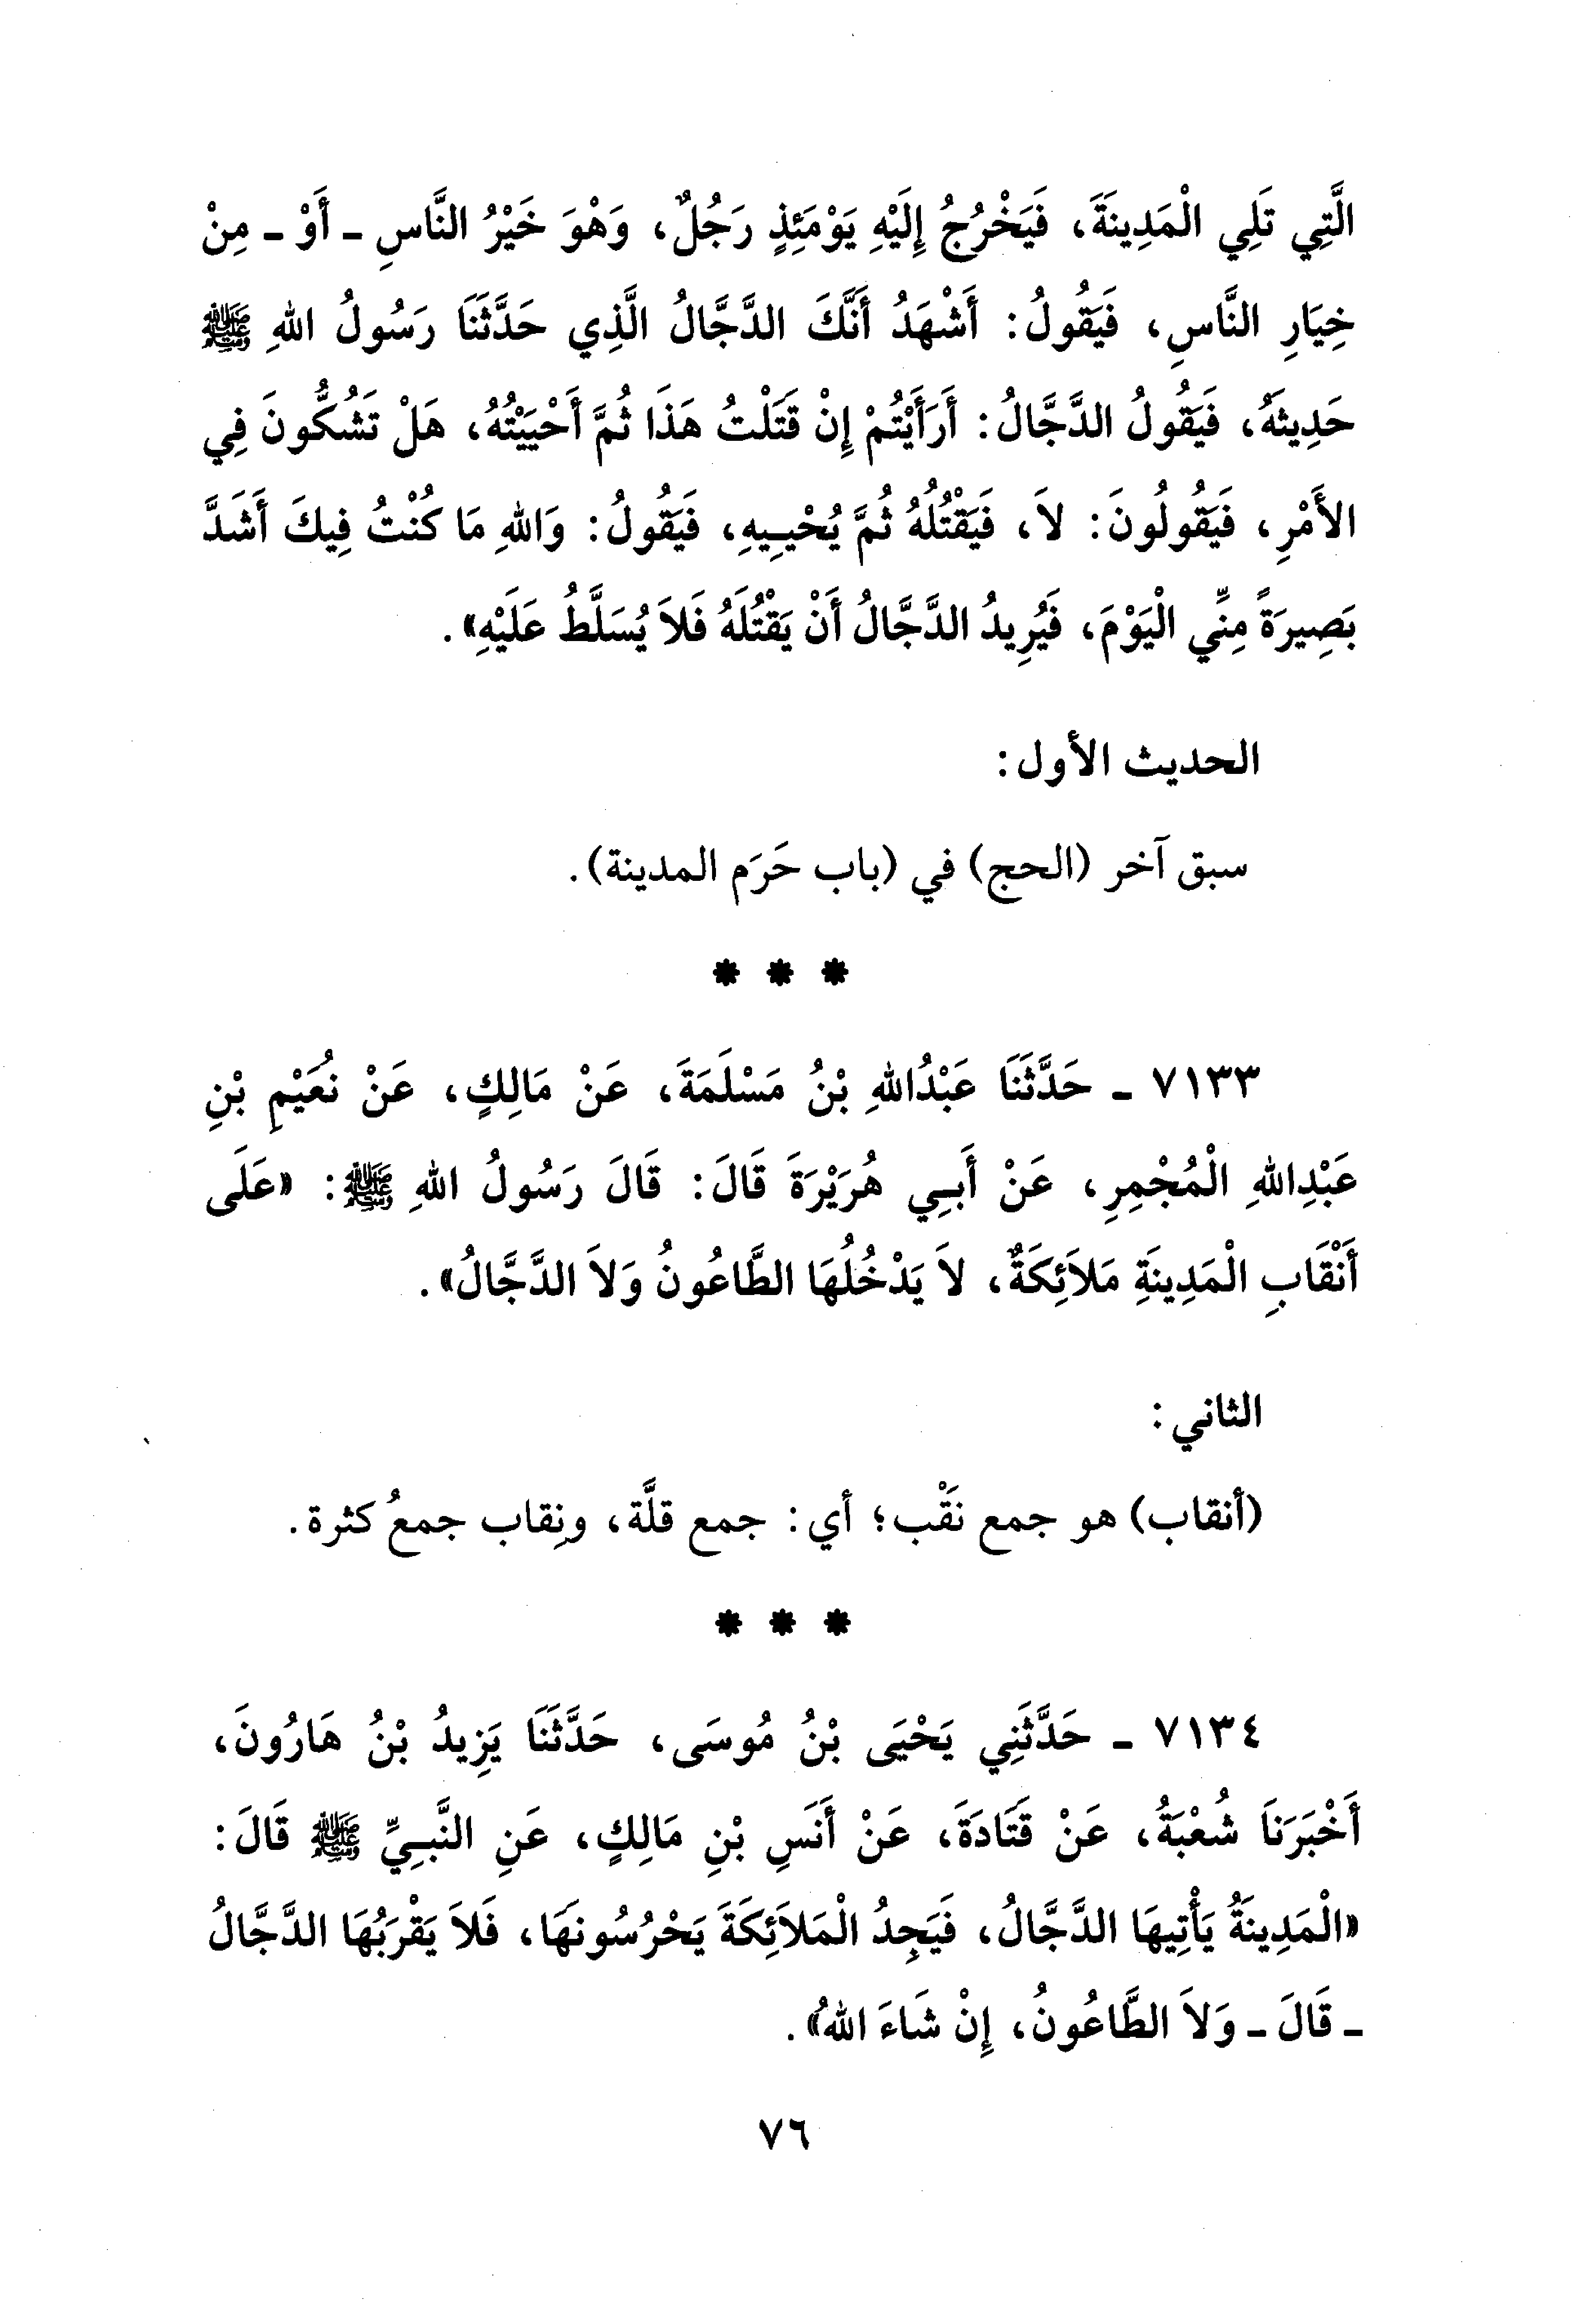 الَّتِي تَلِي الْمَدِينَةَ، فَيَخْرُجُ إِلَيْهِ يَوْمَئِذٍ رَجُلٌ، وَهْوَ خَيْرُ النَّاسِ ـ أَوْ ـ مِنْ
خِيَارِ النَّاسِ، فَيَقُولُ: أَشْهَدُ أَنَّكَ الدَّجَّالُ الَّذِي حَدَّثَنَا رَسُولُ اللهِ ﷺ
حَدِيثَهُ، فَيَقُولُ الدَّجَّالُ: أَرَأَيْتُمْ إِنْ قَتَلْتُ هَذَا ثُمَّ أَحْيَيْتُهُ، هَلْ تَشُكُّونَ فِي
الأَمْرِ، فَيَقُولُونَ: لاَ، فَيَقْتُلُهُ ثُمَّ يُحْيِيهِ، فَيَقُولُ: وَاللهِ مَا كُنْتُ فِيكَ أَشَدَّ
بَصِيرَةً مِنِّي الْيَوْمَ، فَيُرِيدُ الدَّجَّالُ أَنْ يَقْتُلَهُ فَلاَ يُسَلَّطُ عَلَيْهِ».
الحديث الأول:
سبق آخر (الحج) في (باب حَرَم المدينة).
* * *
٧١٣٣ ـ حَدَّثَنَا عَبْدُاللهِ بْنُ مَسْلَمَةَ، عَنْ مَالِكٍ، عَنْ نُعَيْمِ بْنِ
عَبْدِاللهِ الْمُجْمِرِ، عَنْ أَبِي هُرَيْرَةَ قَالَ: قَالَ رَسُولُ اللهِ ﷺ: «عَلَى
أَنْقَابِ الْمَدِينَةِ مَلاَئِكَةٌ، لاَ يَدْخُلُهَا الطَّاعُونُ وَلاَ الدَّجَّالُ».
الثاني:
(أنقاب) هو جمع نَقْب؛ أي: جمع قلَّة، ونِقاب جمعُ كثرة.
* * *
٧١٣٤ ـ حَدَّثَنِي يَحْيَى بْنُ مُوسَى، حَدَّثَنَا يَزِيدُ بْنُ هَارُونَ،
أَخْبَرَنَا شُعْبَةُ، عَنْ قَتَادَةَ، عَنْ أَنَسِ بْنِ مَالِكٍ، عَنِ النَّبِيِّ ﷺ قَالَ:
«الْمَدِينَةُ يَأْتِيهَا الدَّجَّالُ، فَيَجِدُ الْمَلاَئِكَةَ يَحْرُسُونَهَا، فَلاَ يَقْرَبُهَا الدَّجَّالُ
ـ قَالَ ـ وَلاَ الطَّاعُونُ، إِنْ شَاءَ اللهُ».
٧٦